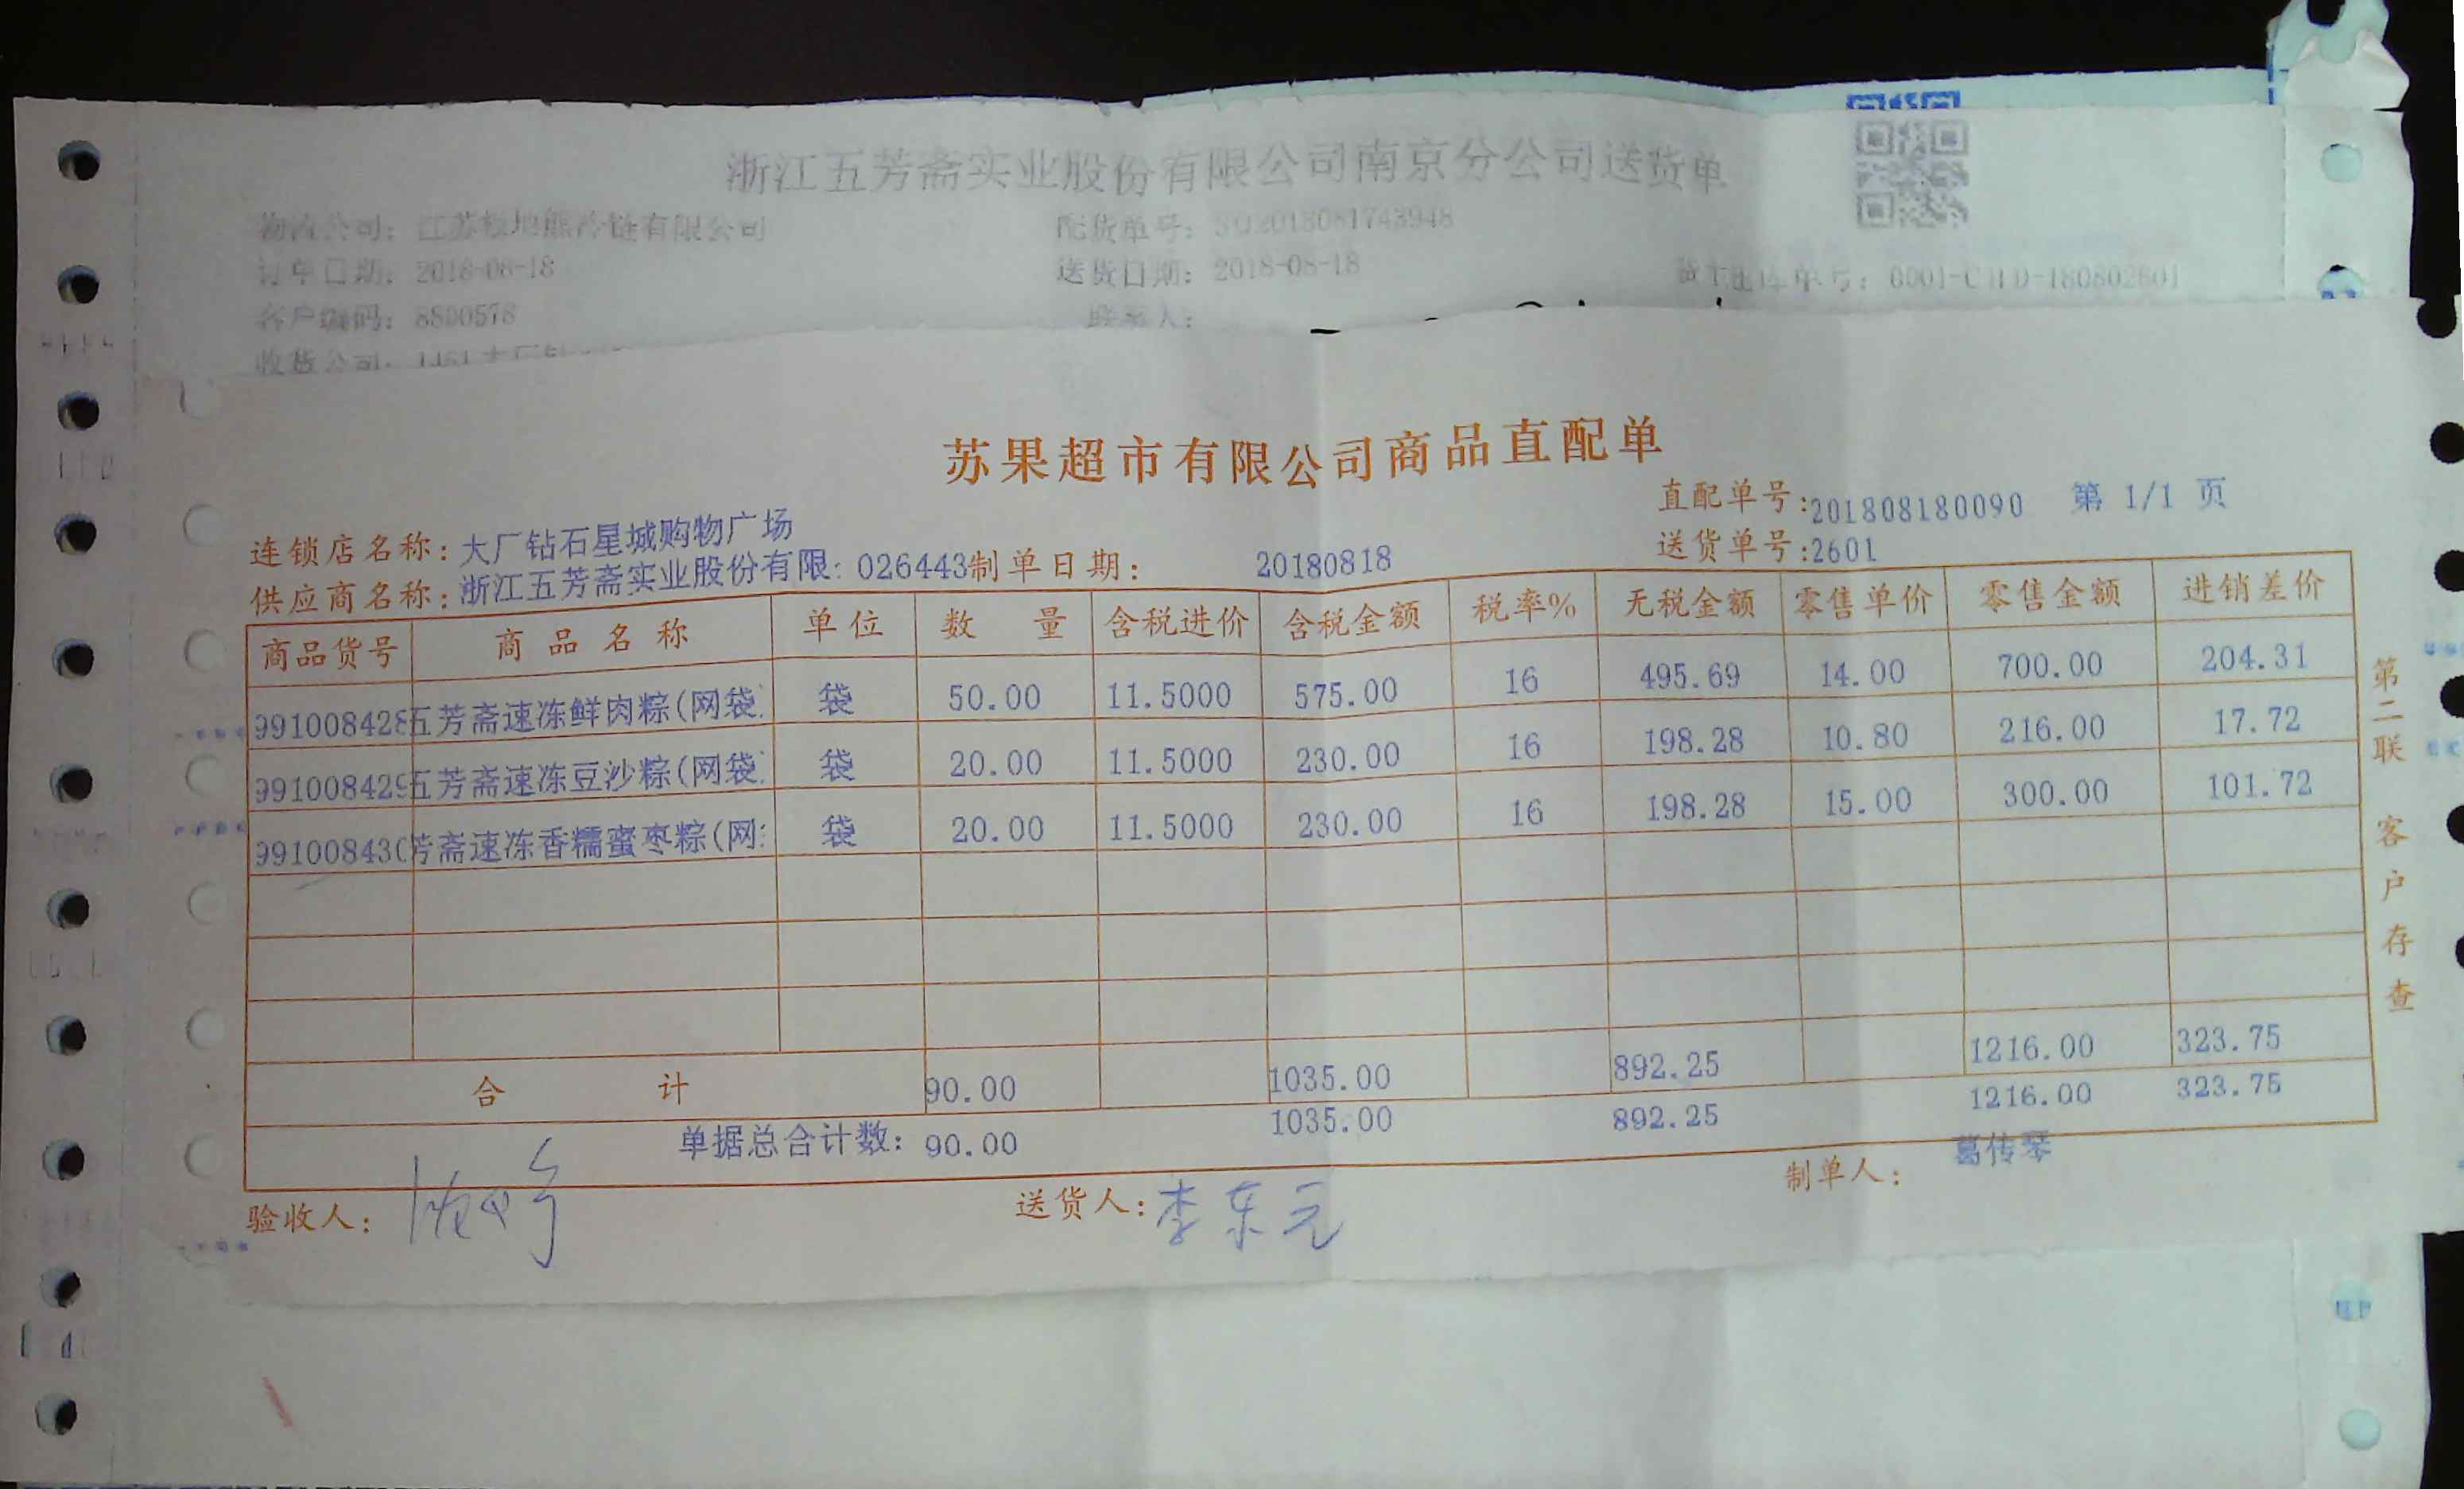 浙江五芳斋实业股份有限公司南京分公司送货单
物流公司: 江苏极地熊冷链有限公司 配货单号: SO2018081743948
订单日期: 2018-08-18 送货日期: 2018-08-18 出库单号: 0001-CHD-180802601
客户编码: 8500578 联系人:
收货公司:
苏果超市有限公司商品直配单
直配单号:201808180090 第 1/1 页
连锁店名称: 大厂钻石星城购物广场 送货单号:2601
供应商名称: 浙江五芳斋实业股份有限: 026443 制单日期: 20180818
商品货号 商品名称 单位 数 量 含税进价 含税金额 税率% 无税金额 零售单价 零售金额 进销差价
991008428 五芳斋速冻鲜肉粽(网袋 袋 50.00 11.5000 575.00 16 495.69 14.00 700.00 204.31
991008429 五芳斋速冻豆沙粽(网袋 袋 20.00 11.5000 230.00 16 198.28 10.80 216.00 17.72
991008430 芳斋速冻香糯蜜枣粽(网 袋 20.00 11.5000 230.00 16 198.28 15.00 300.00 101.72
合 计 90.00 1035.00 892.25 1216.00 323.75
单据总合计数: 90.00 1035.00 892.25 1216.00 323.75
验收人: 送货人: 李东元 制单人: 葛传琴
第二联 客户存查